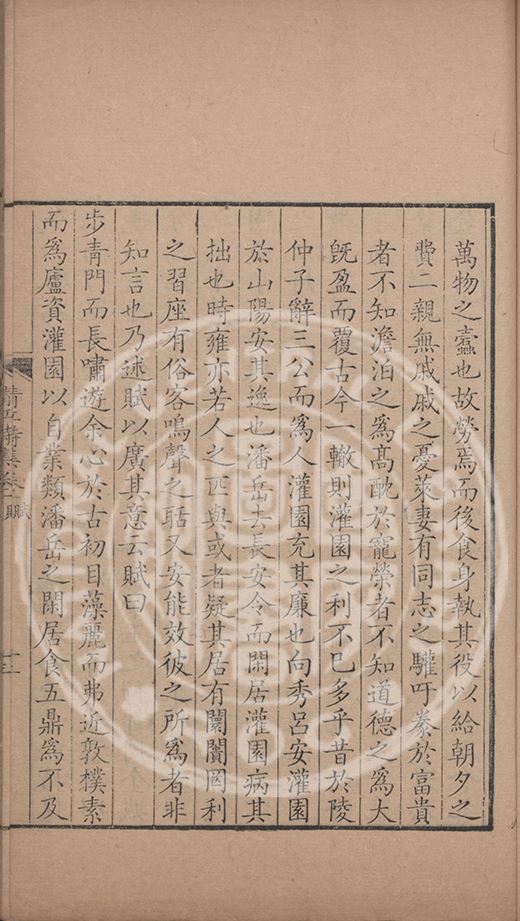 萬物之蠹也故勞焉而後食身執其役以給朝夕之
費二親無戚戚之憂萊妻有同志之驩吁豢於富貴
者不知澹泊之為高酖於寵榮者不知道德之為大
旣盈而覆古今一轍則灌園之利不已多乎昔於陵
仲子辭三公而為人灌園充其廉也向秀呂安灌園
於山陽安其逸也潘岳去長安令而閑居灌園病其
拙也時雍亦若人之匹與或者疑其居有闤闠罔利
之習座有俗客鳴聲之聒又安能效彼之所為者非
知言也乃述賦以廣其意云賦曰
步青門而長嘯遊余心於古初目藻麗而弗近敦樸素
而為廬資灌園以自業類潘岳之閑居食五鼎為不及
集卷 賦